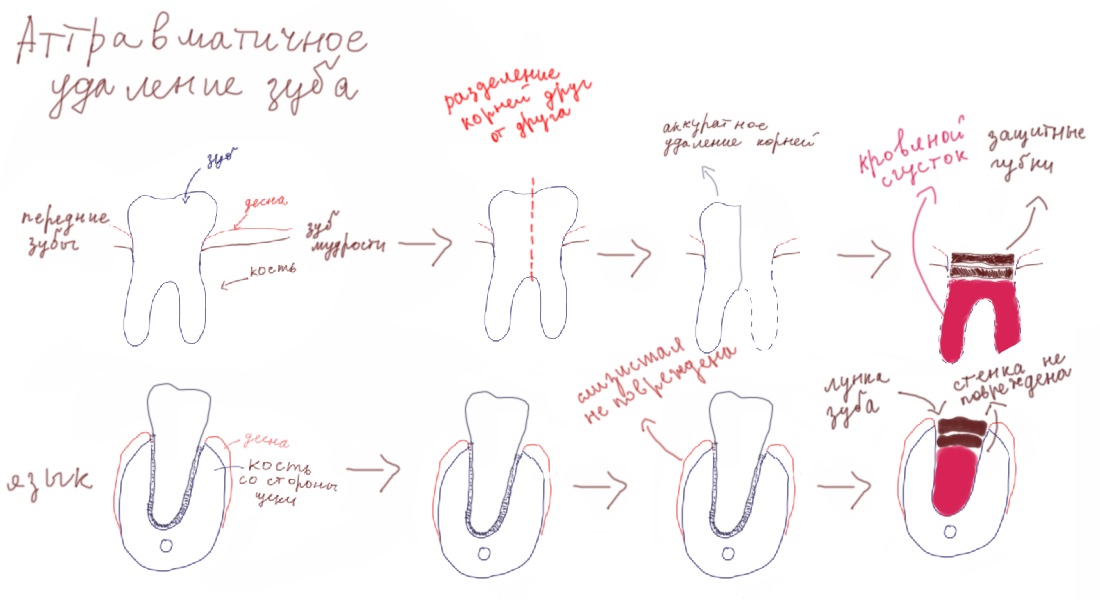 Аттравматичное
удаление зуба
разделение
корней друг
от друга
зуб
передние
зубы
десна
зуб
мудрости
кость
аккуратное
удаление корней
кровяной
сгусток
защитные
губки
слизистая
не повреждена
лунка
зуба
стенка не
повреждена
язык
десна
кость
со стороны
щеки